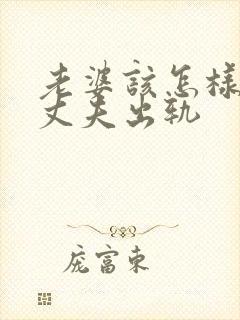 老婆該怎樣
丈夫出軌
龐富東